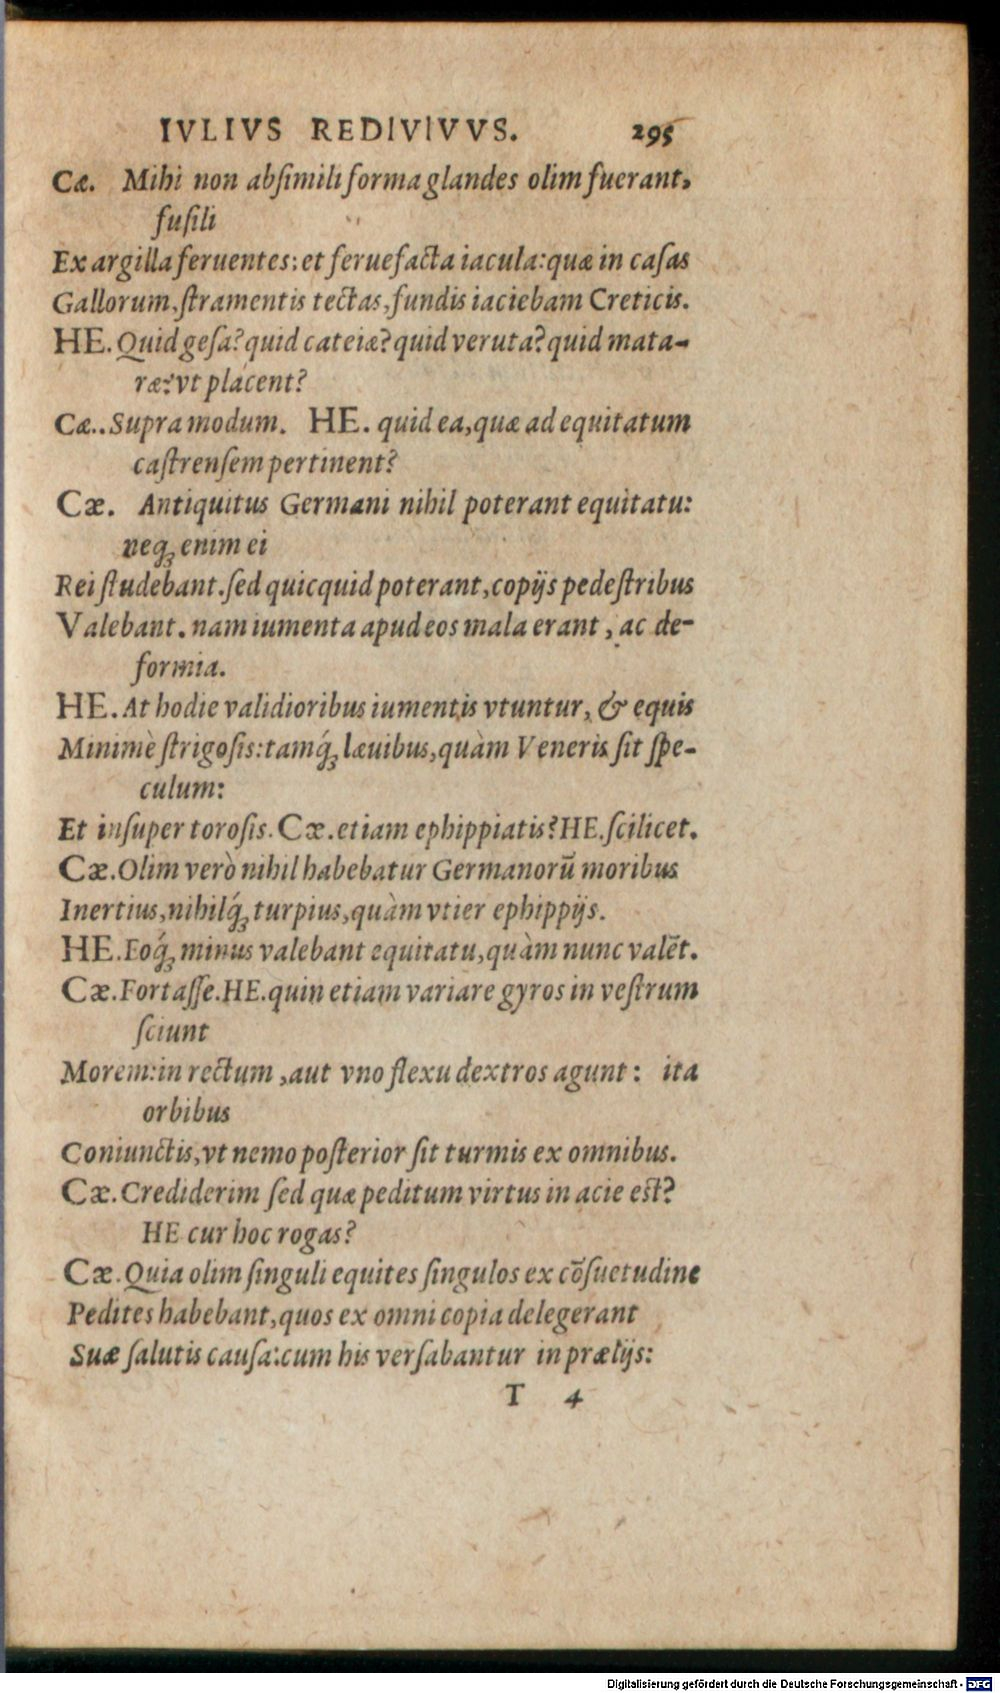 IVLIVS REDIVIVVS. 295
Cæ. Mihi non abſimili forma glandes olim fuerant,
fuſili
Ex argilla feruentes: et feruefacta iacula: quæ in caſas
Gallorum, ſtramentis tectas, fundis iaciebam Creticis.
HE. Quid geſa? quid cateiæ? quid veruta? quid mata-
ræ? vt placent?
Cæ.. Supra modum. HE. quid ea, quæ ad equitatum
caſtrenſem pertinent?
Cæ. Antiquitus Germani nihil poterant equitatu:
neq; enim ei
Rei ſtudebant. ſed quicquid poterant, copijs pedeſtribus
Valebant. nam iumenta apud eos mala erant, ac de-
formia.
HE. At hodie validioribus iumentis vtuntur, & equis
Minimè ſtrigoſis: tamq́; læuibus, quàm Veneris ſit ſpe-
culum:
Et inſuper toroſis. Cæ. etiam ephippiatis? HE. ſcilicet.
Cæ. Olim verò nihil habebatur Germanorū moribus
Inertius, nihilq́; turpius, quàm vtier ephippijs.
HE. Eoq́; minus valebant equitatu, quàm nunc valēt.
Cæ. Fortaſſe. HE. quin etiam variare gyros in veſtrum
ſciunt
Morem: in rectum, aut vno flexu dextros agunt: ita
orbibus
Coniunctis, vt nemo poſterior ſit turmis ex omnibus.
Cæ. Crediderim ſed quæ peditum virtus in acie eſt?
HE cur hoc rogas?
Cæ. Quia olim ſinguli equites ſingulos ex cōſuetudine
Pedites habebant, quos ex omni copia delegerant
Suæ ſalutis cauſa: cum his verſabantur in prælijs:
T 4
Digitalisierung gefördert durch die Deutsche Forschungsgemeinschaft - DFG